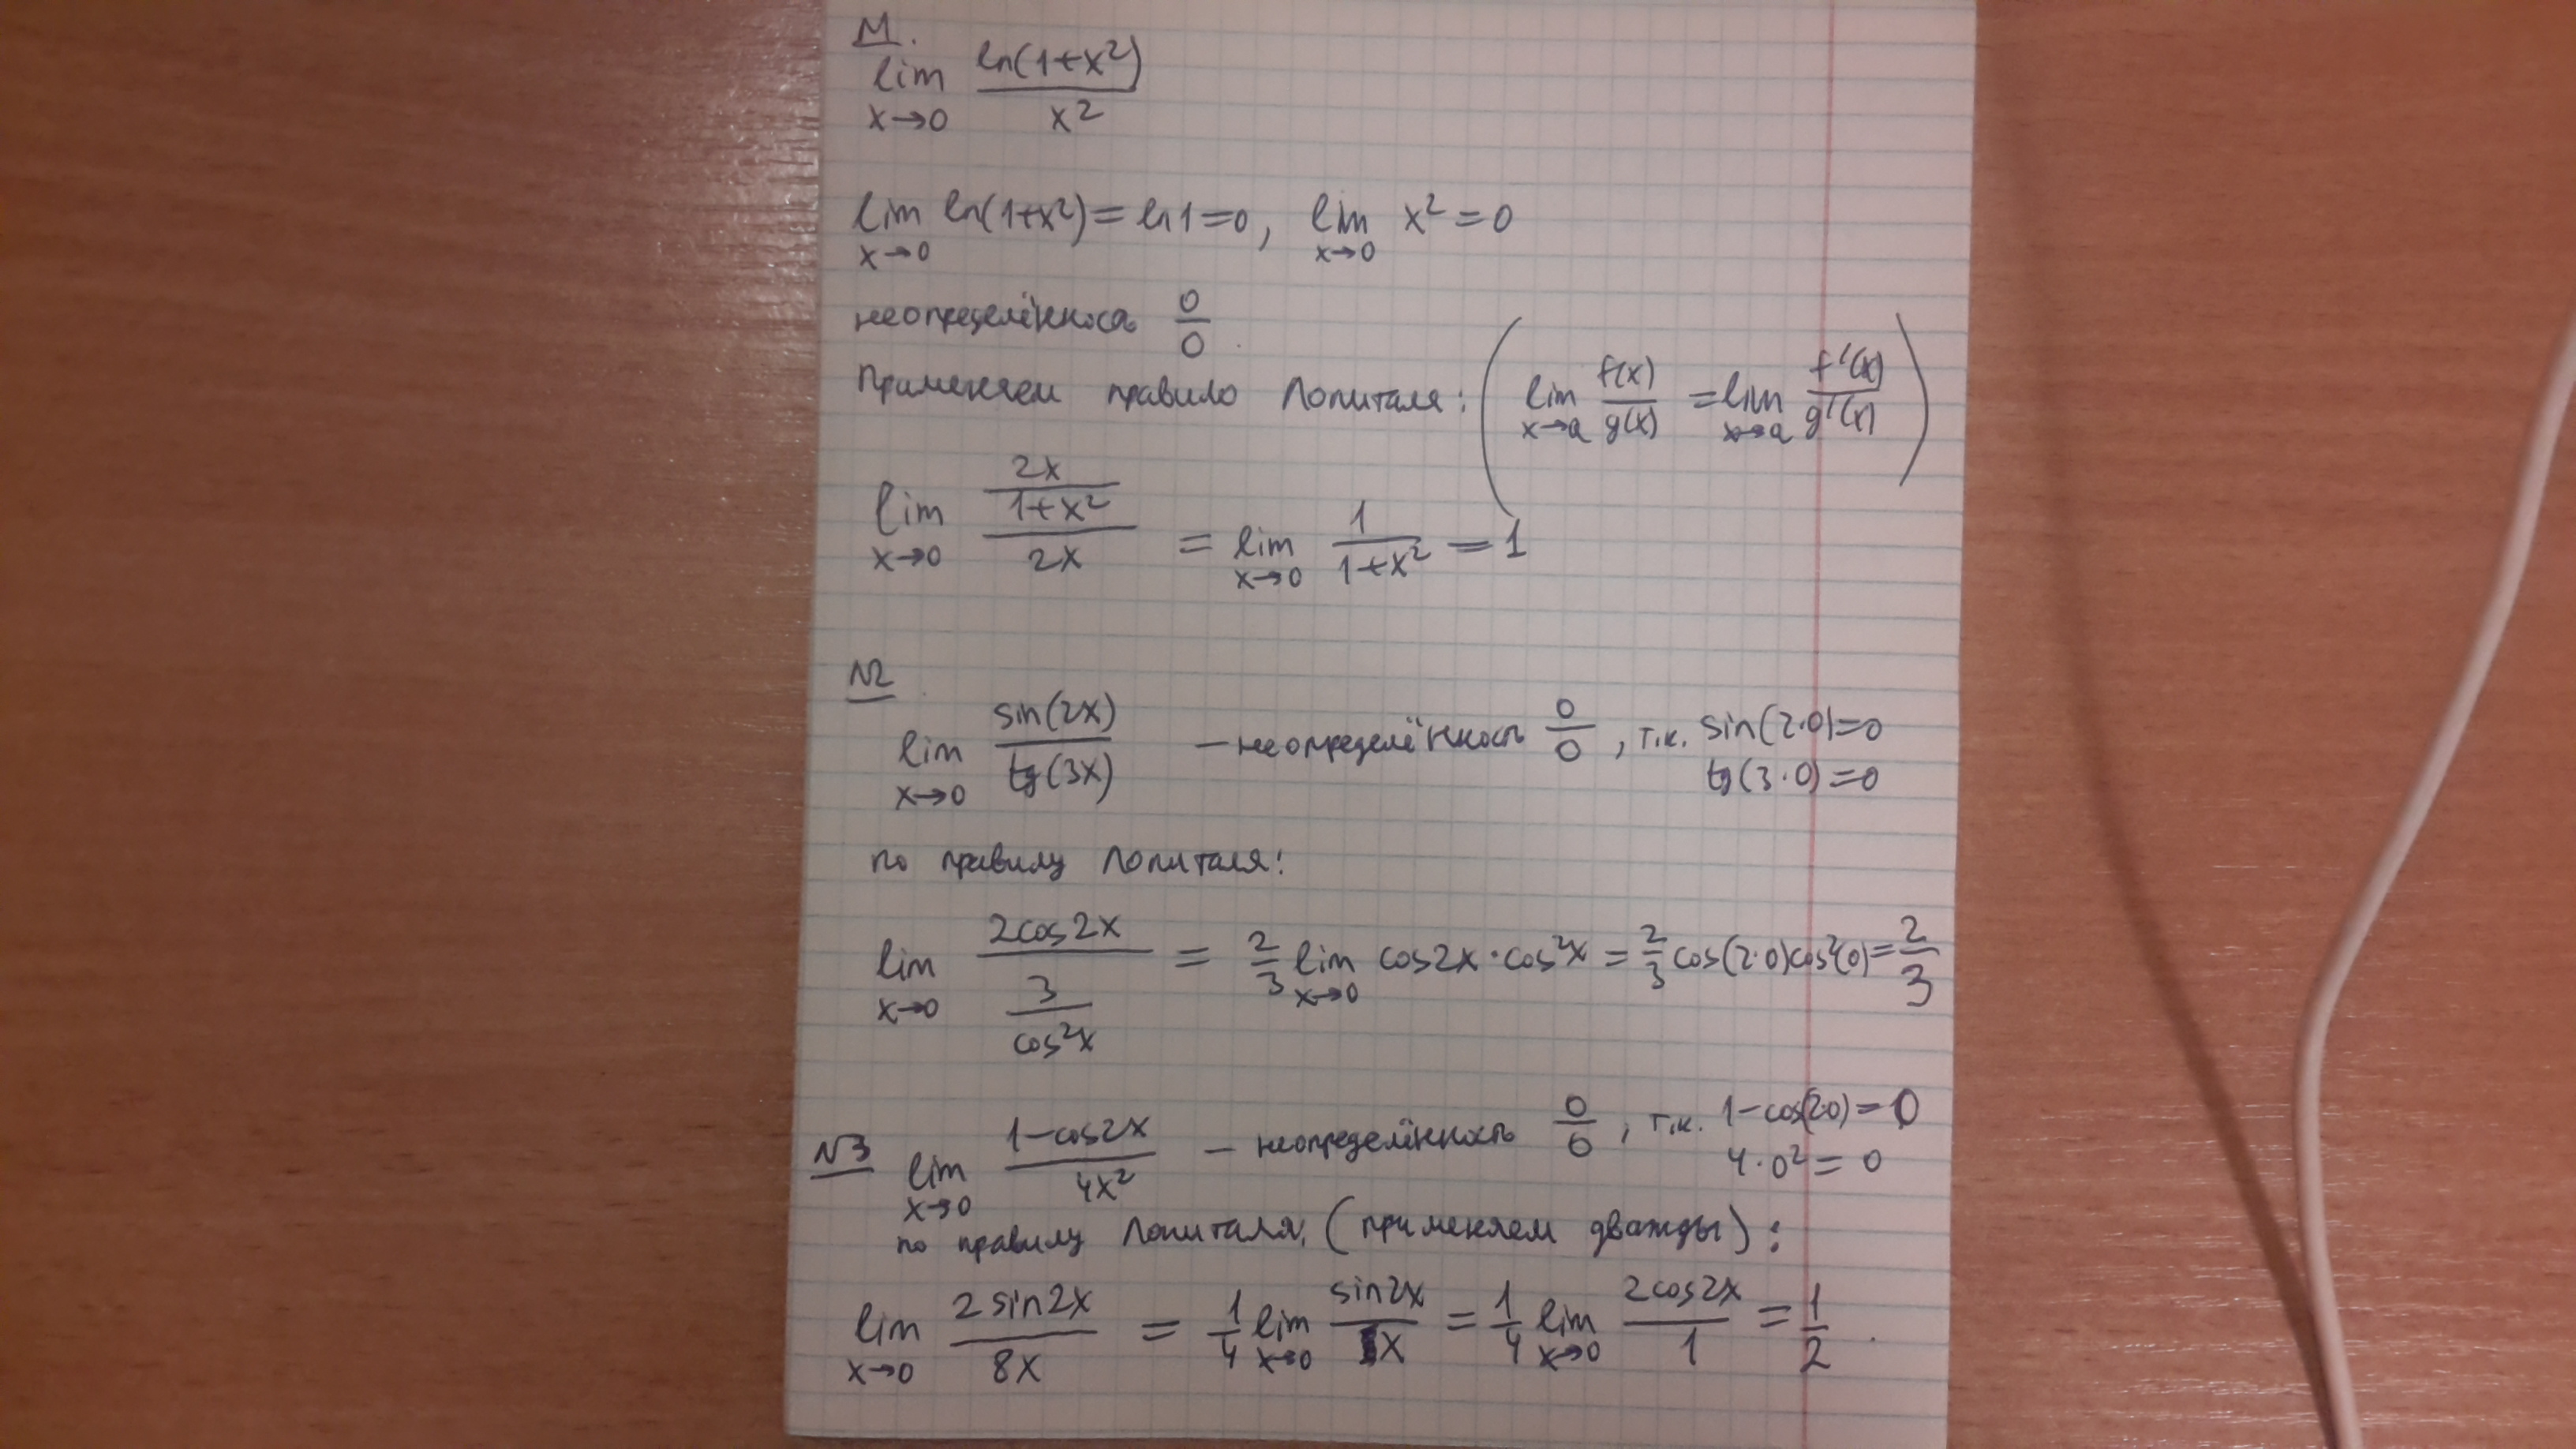 №1.
lim x→0 ln(1+x²)/x²
lim x→0 ln(1+x²) = ln1 = 0, lim x→0 x² = 0
неопределённость 0/0.
Применяем правило Лопиталя: (lim x→a f(x)/g(x) = lim x→a f'(x)/g'(x))
lim x→0 (2x/(1+x²))/2x = lim x→0 1/(1+x²) = 1
№2
lim x→0 sin(2x)/tg(3x) — неопределённость 0/0, т.к. sin(2·0)=0
tg(3·0)=0
по правилу Лопиталя:
lim x→0 2cos2x/(3/cos²x) = 2/3 lim x→0 cos2x·cos²x = 2/3 cos(2·0)cos²(0) = 2/3
№3 lim x→0 (1-cos2x)/4x² — неопределённость 0/0, т.к. 1-cos(2·0)=0
4·0²=0
по правилу Лопиталя (применяем дважды):
lim x→0 2sin2x/8x = 1/4 lim x→0 sin2x/x = 1/4 lim x→0 2cos2x/1 = 1/2.